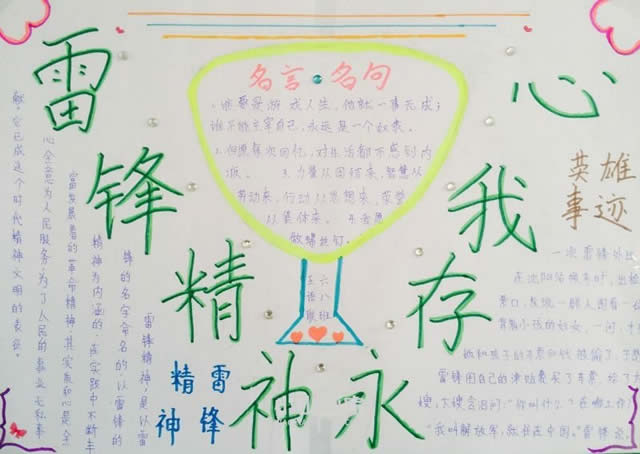 雷锋精神永存我心
名言·名句
1.谁要是游戏人生,他就一事无成;
谁不能主宰自己,永远是一个奴隶。
2.但愿每次回忆,对生活都不感到内
疚。 3.力量从团结来,智慧从
劳动来,行动从思想来,荣誉
从集体来。 4.甘愿
做螺丝钉。
六八班
王语
英雄
事迹
一次雷锋外出
在沈阳站换车时,出检
票口,发现一群人围着一
背着小孩的妇女,一问,
她和孩子的车票和钱
雷锋用自己的津贴费买了车票
嫂,大嫂含泪问:"你叫什么?在哪工作
"我叫解放军,就住在中国。"雷锋
雷锋
精神
雷锋精神,是以雷
锋的名字命名的以雷锋的
精神为内涵的,在实践中不断丰
富发展着的革命精神,其实质和心是全
心全意为人民服务,为了人民的事业无私奉
献。它已成这个时代精神文明的表征。